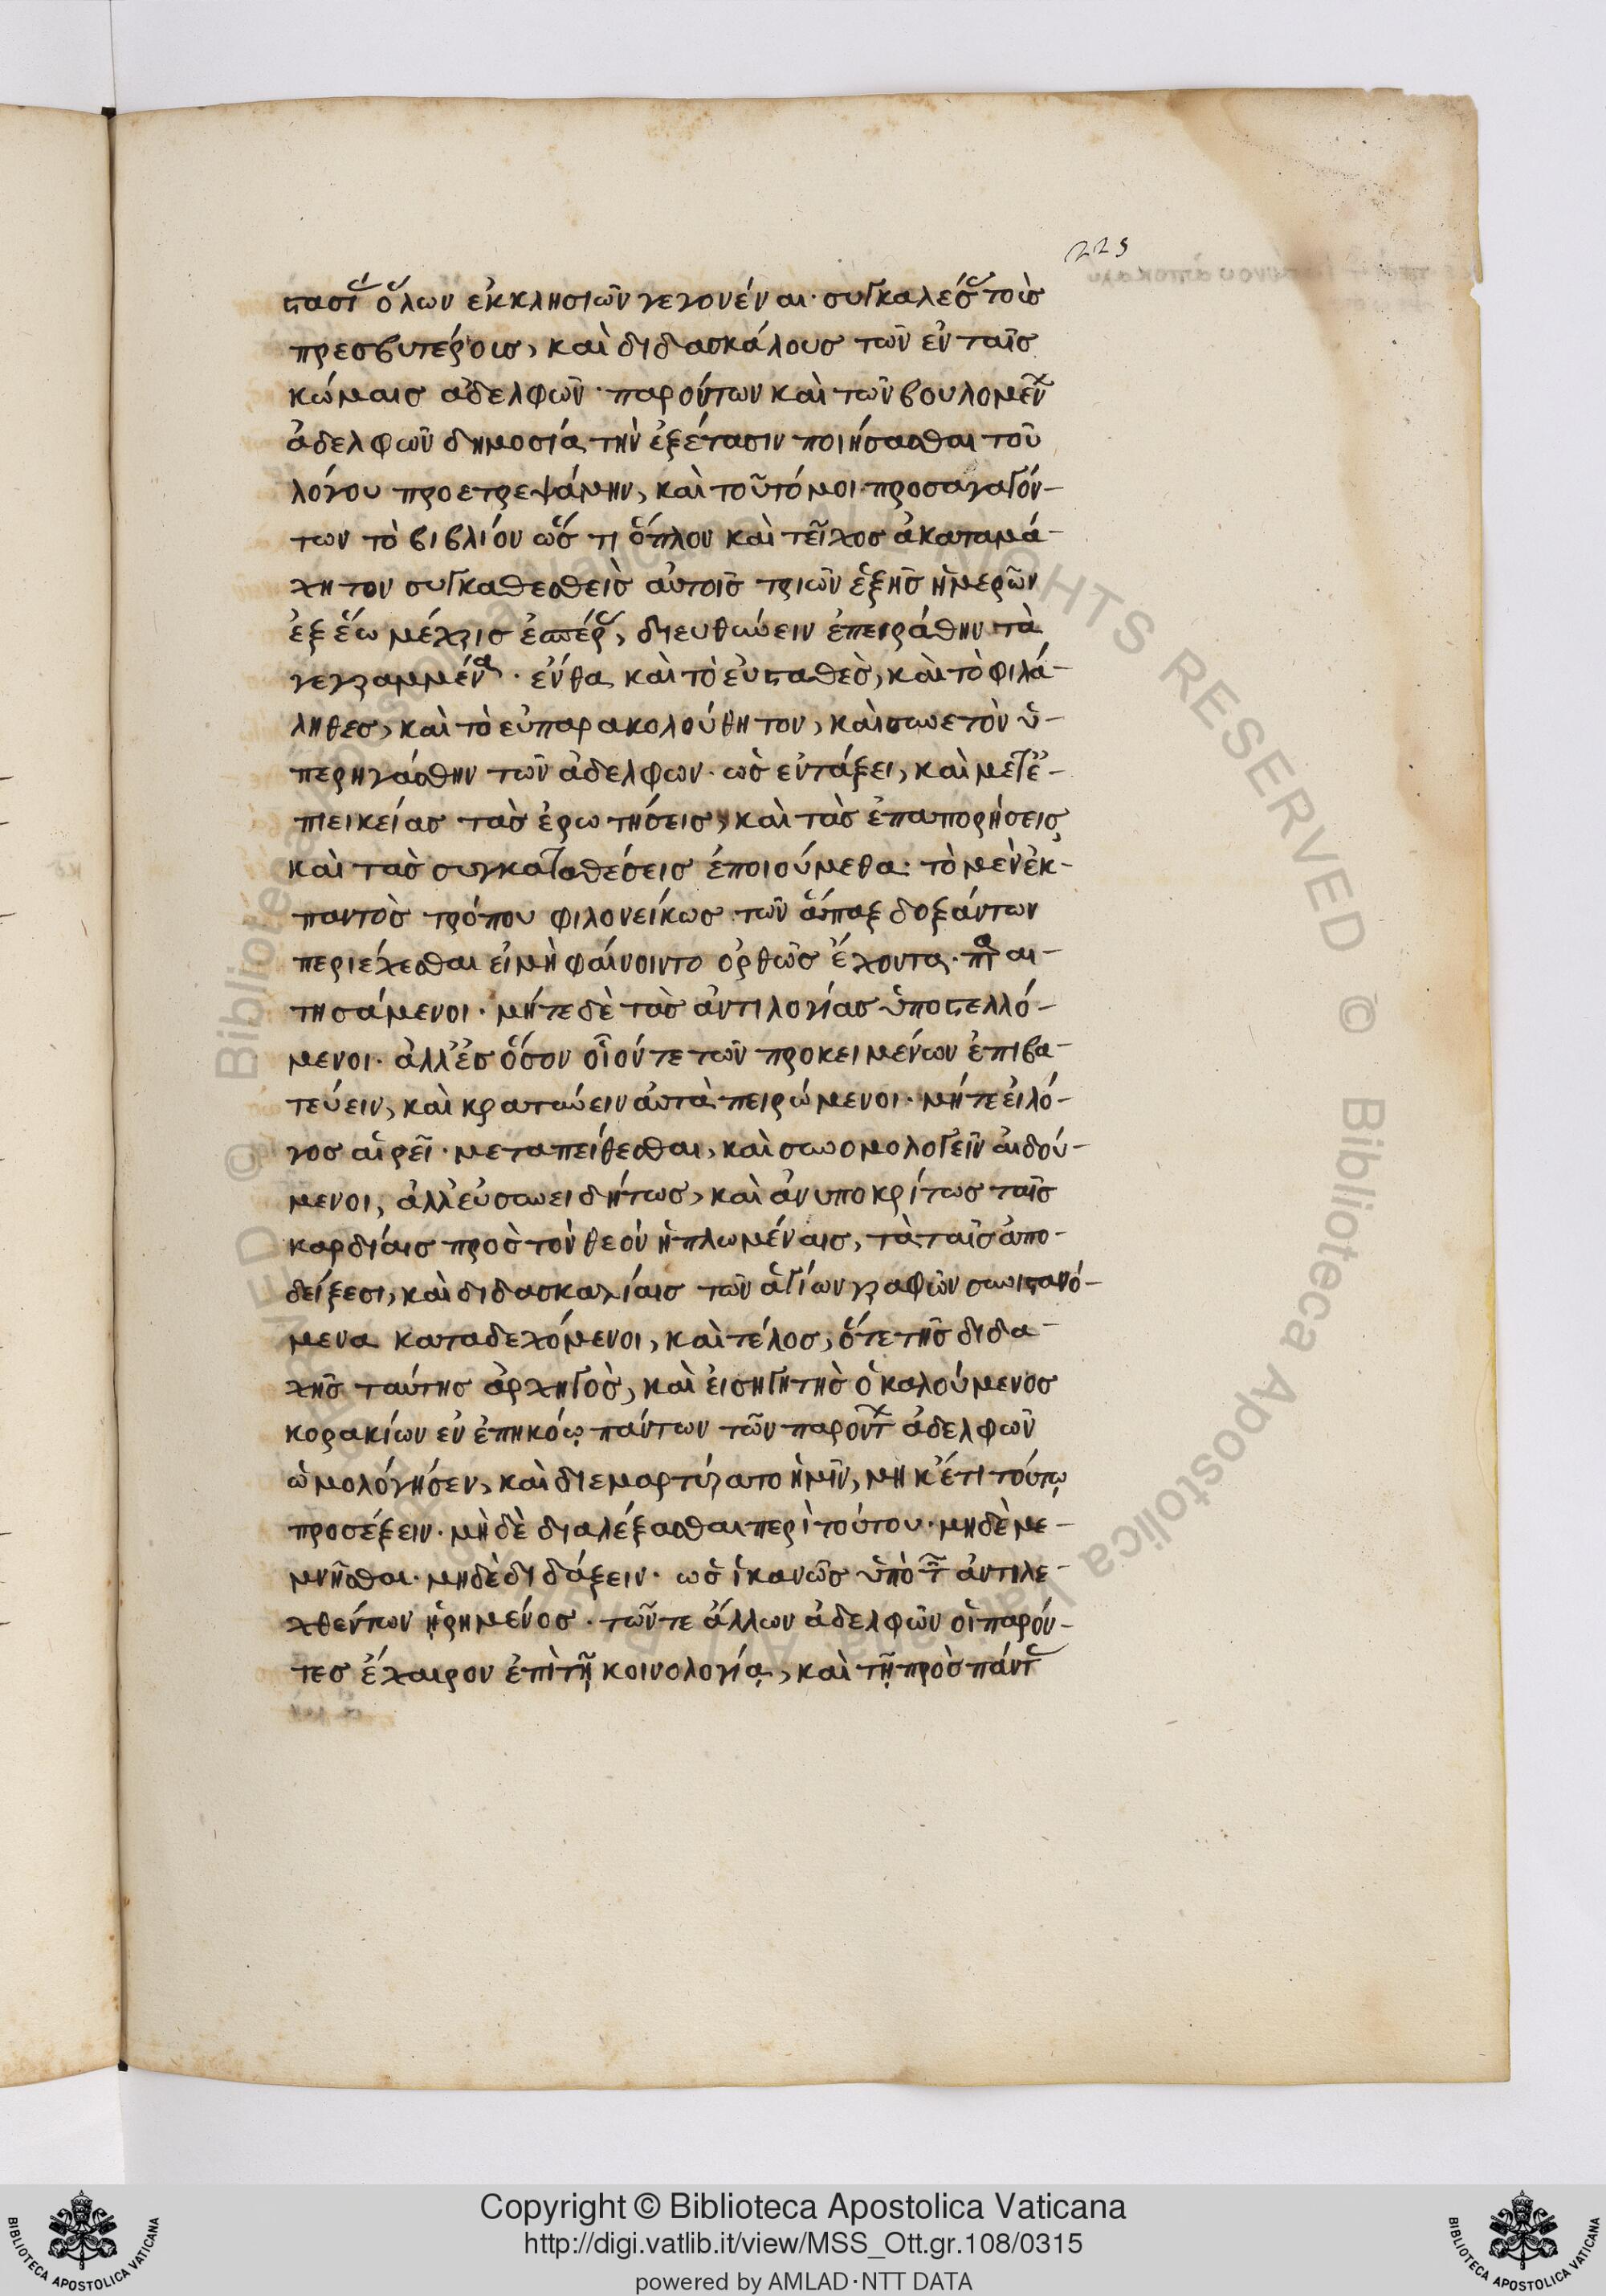 229
στασί(ας) ὅλων ἐκκλησιῶν γεγονέναι· συγκαλέσας τοὺς
πρεσβυτέροις, καὶ διδασκάλους τῶν ἐν ταῖς
κώμαις ἀδελφῶν· παρόντων καὶ τῶν βουλομένων
ἀδελφῶν δημοσία τὴν ἐξέτασιν ποιήσασθαι τοῦ
λόγου προετρεψάμην, καὶ τοῦτό μοι προσαγαγόν-
των τὸ βιβλίον ὥς τι ὅπλον καὶ τεῖχος ἀκαταμά-
χητον συγκαθεσθεὶς αὐτοῖς τριῶν ἑξῆς ἡμερῶν
ἐξ ἕω μέχρις ἑσπέρας, διευθύνειν ἐπειράθην τὰ
γεγραμμένα· ἔνθα καὶ τὸ εὐσταθὲς, καὶ τὸ φιλά-
ληθες, καὶ τὸ εὐπαρακολούθητον, καὶ συνετὸν ὑ-
περηγάσθην τῶν ἀδελφων· ὡς ἐν τάξει, καὶ μετ' ἐ-
πιεικείας τὰς ἐρωτήσεις, καὶ τὰς ἐπαπορήσεις
καὶ τὰς συγκαταθέσεις ἐποιούμεθα· τὸ μὲν ἐκ-
παντὸς τρόπου φιλονείκως τῶν ἅπαξ δοξάντων
περιέχεσθαι εἰ μὴ φαίνοιντο ὀρθῶς ἔχοντα· παραι-
τησάμενοι· μήτε δὲ τὰς ἀντιλογίας ὑποστελλό-
μενοι· ἀλλ' ἐς ὅσον οἷόν τε τῶν προκειμένων ἐπιβα-
τεύειν, καὶ κρατύνειν αὐτὰ πειρώμενοι· μήτε εἰ λό-
γος αἱρεῖ· μεταπείθεσθαι, καὶ συνομολογεῖν αἰδού-
μενοι, ἀλλ' εὐσυνειδήτως, καὶ ἀνυποκρίτως ταῖς
καρδίαις πρὸς τὸν θεὸν ἡπλωμέναις, τὰ ταῖς ἀπο-
δείξεσι, καὶ διδασκαλίαις τῶν ἁγίων γραφῶν συνιστανό-
μενα καταδεχόμενοι, καὶ τέλος, ὅτε τῆς διδα-
χῆς ταύτης ἀρχηγὸς, καὶ εἰσηγητὴς ὁ καλούμενος
κορακίων ἐν ἐπηκόῳ πάντων τῶν παρόντων ἀδελφῶν
ὡμολόγησεν, καὶ διεμαρτύρατο ἡμῖν, μηκ'έτι τούτῳ
προσέξειν· μὴ δὲ διαλέξασθαι περὶ τούτου· μηδὲ με-
μνῆσθαι· μηδὲ διδάξειν· ὡς ἱκανῶς ὑπὸ τῶν ἀντιλε-
χθέντων ᾑρημένος· τῶν τε ἄλλων ἀδελφῶν οἱ παρόν-
τες ἔχαιρον ἐπὶ τῇ κοινολογίᾳ, καὶ τῇ πρὸς πάντας
Copyright © Biblioteca Apostolica Vaticana
http://digi.vatlib.it/view/MSS_Ott.gr.108/0315
powered by AMLAD·NTT DATA